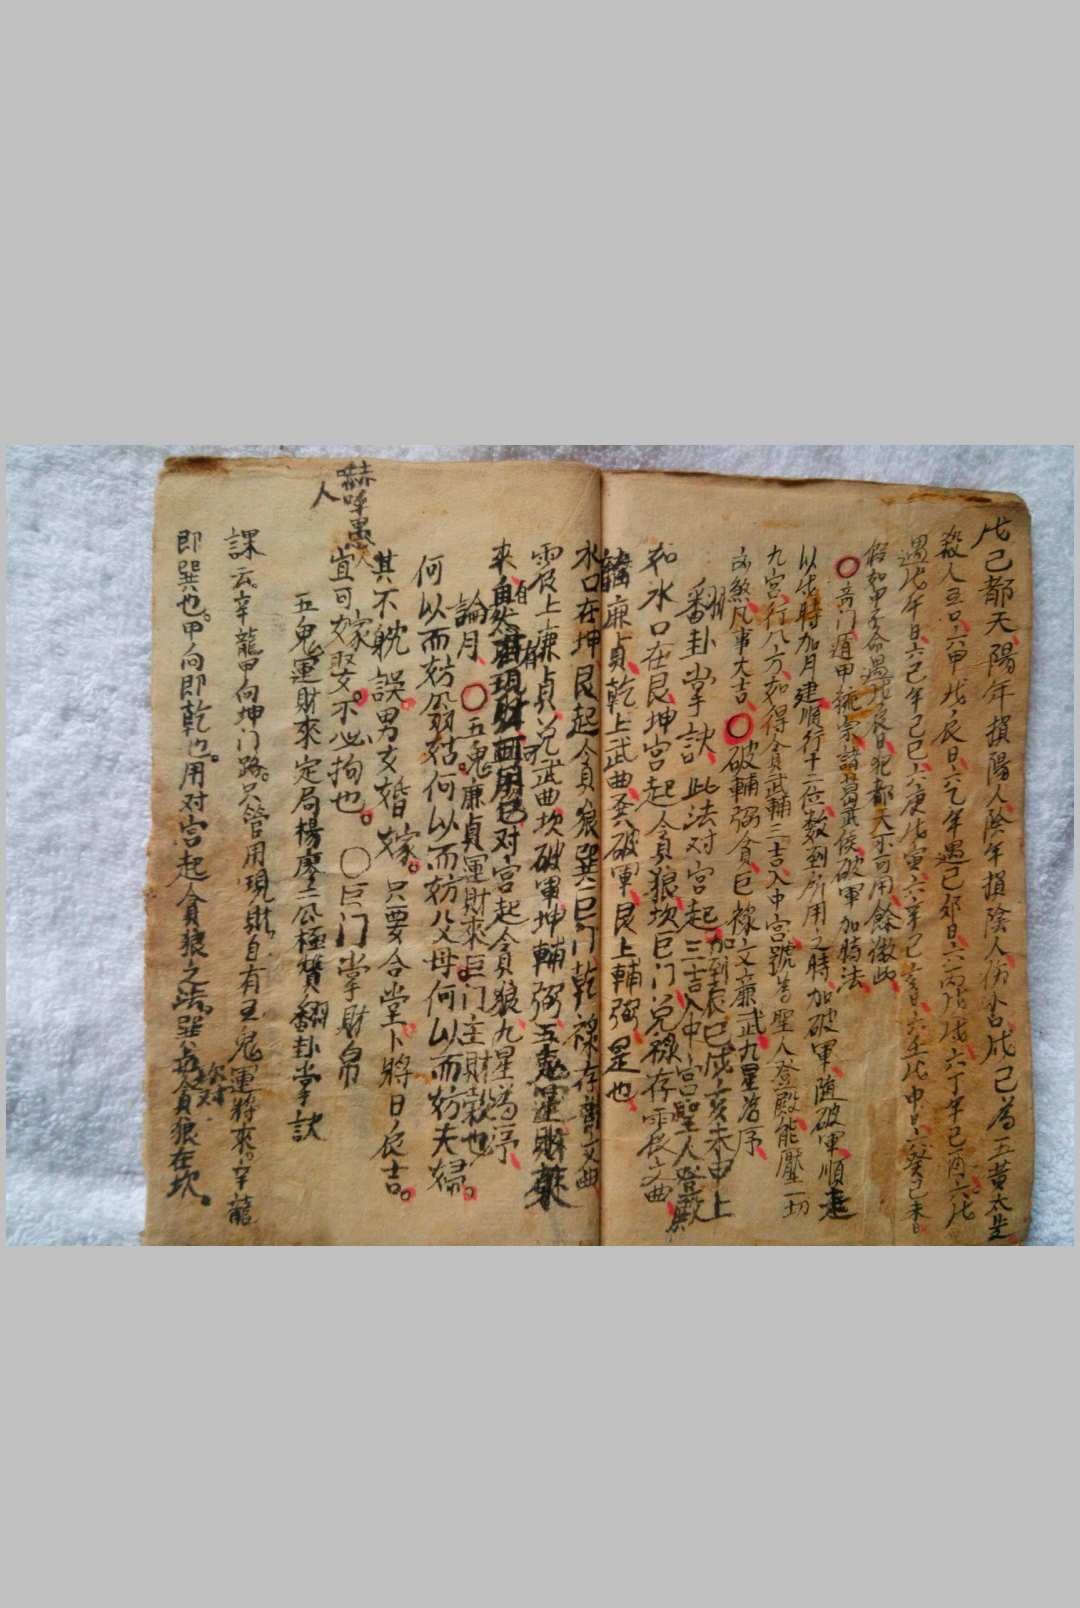 戊己都天陽年損陽人陰年損陰人傷小口戊己為五黃太歲
殺人五只六甲戊辰日六乙年遇己卯日六丙戊戌六丁年己酉六戊
遇戊午日六己年己巳六庚戊寅六辛己亥六壬戊申日六癸己未日
假如甲子命遇戊辰日犯都天不可用餘倣此
奇门遁甲統宗諸葛武侯破軍加時法
以戌時加月建順行十二位數到所用之時加破軍隨破軍順走
九宮行八方如得貪武輔三吉入中宮號為聖人登殿能壓一切
凶煞凡事大吉 破輔弼貪巨祿文廉武九星為序
翻卦掌訣 此法对宮起加到辰巳戌亥未申上
如水口在艮坤宮起貪狼坎巨门兌祿存震文曲
離廉貞乾上武曲巽破軍艮上輔弼是也
水口在坤艮起貪狼巽巨门乾祿存離文曲
震上廉貞兌武曲坎破軍坤輔弼五鬼運財
來自有对宮起貪狼九星為序
論月 五鬼廉貞運財來巨门主財穀也
何以而妨翁姑何以而妨父母何以而妨夫婦
其不躭誤男女婚嫁只要合堂卜將日辰吉
宜可嫁娶不必拘也 巨门掌財帛
赫呼愚人
五鬼運財來定局楊廖二公極贊翻卦掌訣
課云辛龍甲向坤门路只管用現財自有五鬼運將來辛龍
即巽也甲向即乾也用对宮起貪狼之法巽对貪狼在坎